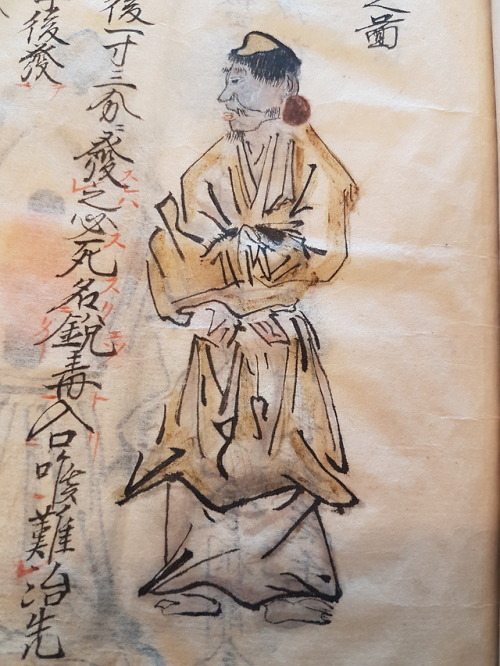 之圖
後一寸三分ニ發之必死名鋭毒入口喉難治先
後發